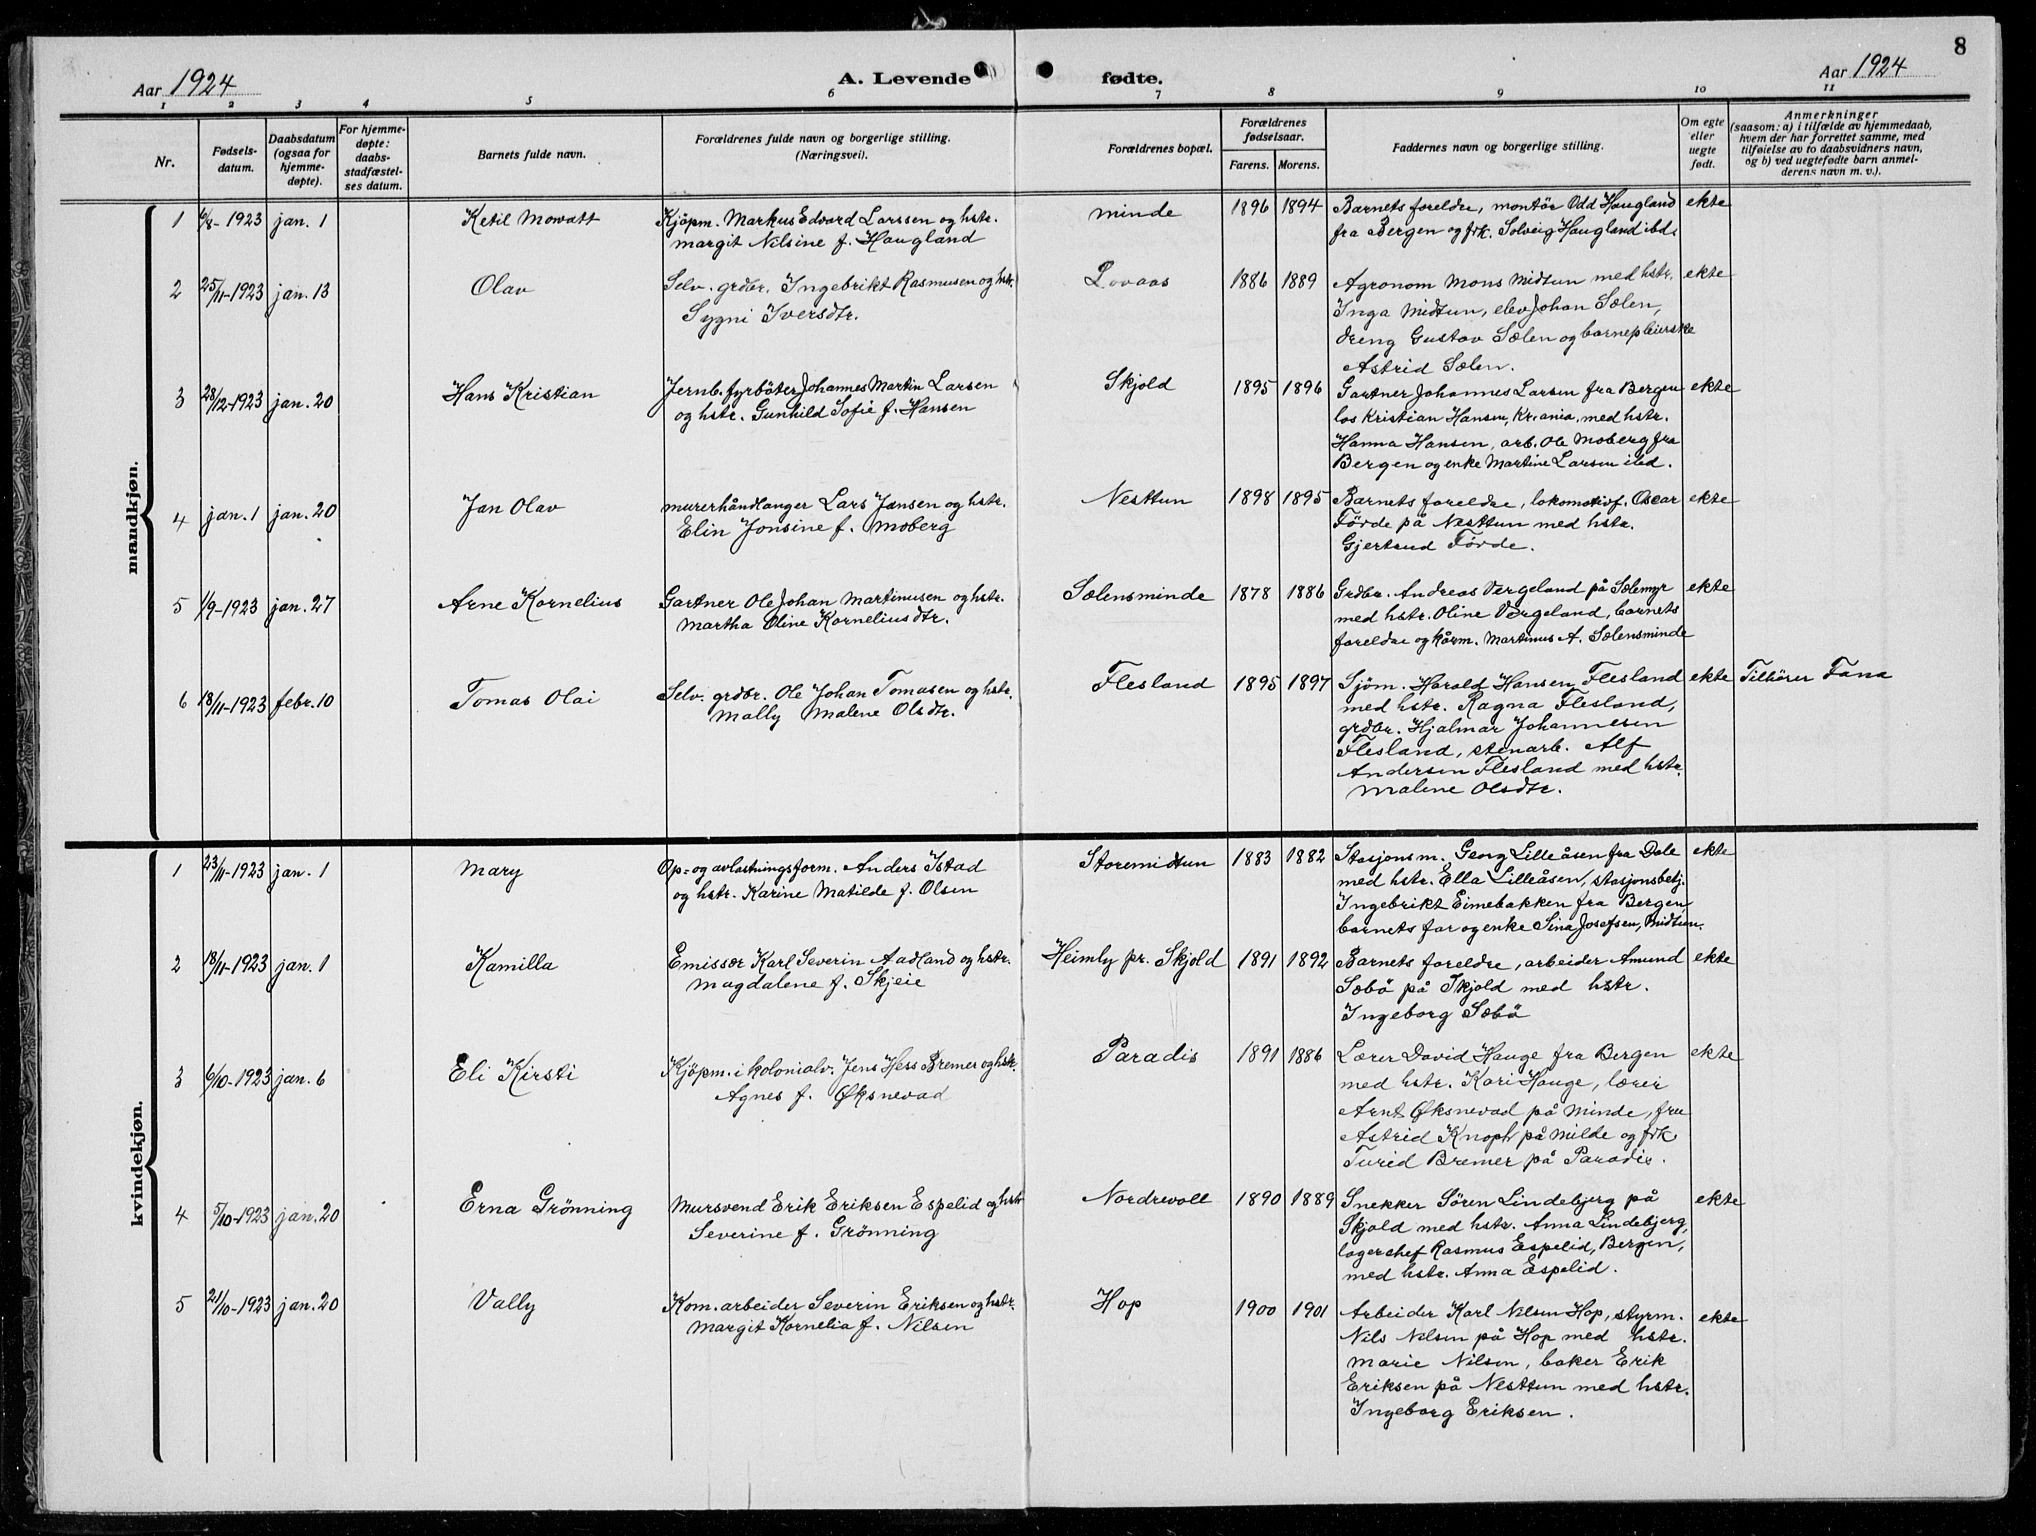 8
Aar 1924
A. Levende
fødte.
Aar 1924
1 2 3 4 5 6 7 8 9 10 11
Nr.
Fødsels-
datum.
Daabsdatum
(ogsaa for
hjemme-
døpte).
For hjemme-
døpte:
daabs-
stadfæstel-
ses datum.
Barnets fulde navn.
Forældrenes fulde navn og borgerlige stilling.
(Næringsvei).
Forældrenes bopæl.
Forældrenes
fødselsaar.
Farens. Morens.
Faddernes navn og borgerlige stilling.
Om egte
eller
uegte
født.
Anmerkninger
(saasom: a) i tilfælde av hjemmedaab,
hvem der har forrettet samme, med
tilføielse av to daabsvidners navn,
og b) ved uegtefødte barn anmel-
derens navn m. v.).
mandkjøn.
1 6/8-1923 jan. 1 Ketil Mowatt Kjöpm. Markus Edvard Larssen og hstr. Minde 1896 1894 Barnets foreldre, montör Odd Haugland ekte
Margit Nilsine f. Haugland fra Bergen og frk. Solveig Haugland ibd.
2 25/11-1923 jan. 13 Olav Selv. grdbr. Ingebrikt Rasmusen og hstr. Lovaas 1886 1889 Agronom Mons Midtun med hstr. ekte
Sygni Iversdtr. Inga Midtun, elev Johan Sælen,
dreng Gustav Sælen og barnepleierske
Astrid Sælen.
3 28/12-1923 jan. 20 Hans Kristian Jernb. fyrböter Johannes Martin Larsen Skjold 1895 1896 Gartner Johannes Larsen fra Bergen ekte
og hstr. Gunhild Sofie f. Hansen los Kristian Hansen, Kr.ania, med hstr.
Hanna Hansen, arb. Ole Moberg fra
Bergen og enke Martine Larsen ibd.
4 jan. 1 jan. 20 Jan Olav Murerhåndlanger Lars Jansen og hstr. Nesttun 1898 1895 Barnets foreldre, lokomotivf. Oscar ekte
Elin Jonsine f. Moberg Förde på Nesttun med hstr.
Gjertrud Förde.
5 1/9-1923 jan. 27 Arne Kornelius Gartner Ole Johan Martinusen og hstr. Sælensminde 1878 1886 Grdbr. Andreas Vargeland på Sælemyr ekte
Martha Oline Korneliusdtr. med hstr. Oline Vargeland, barnets
foreldre og kårm. Martinus A. Sælensminde
6 18/11-1923 febr. 10 Tomas Olai Selv. grdbr. Ole Johan Tomasen og hstr. Flesland 1895 1897 Sjöm. Harald Hansen Flesland ekte Tilhörer Fana
Mally Malene Olsdtr. med hstr. Ragna Flesland,
grdbr. Hjalmar Johannesen
Flesland, stenarb. Alf
Andersen Flesland med hstr.
Malene Olsdtr.
kvindekjøn.
1 23/11-1923 jan. 1 Mary Op- og avlastningsform. Anders Istad Storemidtun 1883 1882 Stasjonsm. Georg Lilleåsen fra Dale ekte
og hstr. Karine Matilde f. Olsen med hstr. Ella Lilleåsen, stasjonsbetj.
Ingebrikt Eimebakken fra Bergen,
barnets far og enke Sina Josefsen, Midtun.
2 18/11-1923 jan. 1 Kamilla Emissær Karl Severin Aadland og hstr. Heimly pr. Skjold 1891 1892 Barnets foreldre, arbeider Amund ekte
Magdalene f. Skjeie Sæbö på Skjold med hstr.
Ingeborg Sæbö
3 6/10-1923 jan. 6 Eli Kirsti Kjöpm. i kolonialv. Jens Hess Bremer og hstr. Paradis 1891 1886 Lærer David Hauge fra Bergen ekte
Agnes f. Øksnevad med hstr. Kari Hauge, lærer
Arnt Øksnevad på Minde, fru
Astrid Knoph på Milde og frk.
Turid Bremer på Paradis.
4 5/10-1923 jan. 20 Erna Grönning Mursvend Erik Eriksen Espelid og hstr. Nordrevoll 1890 1889 Snekker Sören Lindebjerg på ekte
Severine f. Grönning Skjold med hstr. Anna Lindebjerg,
lagerchef Rasmus Espelid, Bergen,
med hstr. Anna Espelid.
5 21/10-1923 jan. 20 Vally Kom. arbeider Severin Eriksen og hstr. Hop 1900 1901 Arbeider Karl Nilsen Hop, styrm. ekte
Margit Kornelia f. Nilsen Nils Nilsen på Hop med hstr.
Marie Nilsen, baker Erik
Eriksen på Nesttun med hstr.
Ingeborg Eriksen.